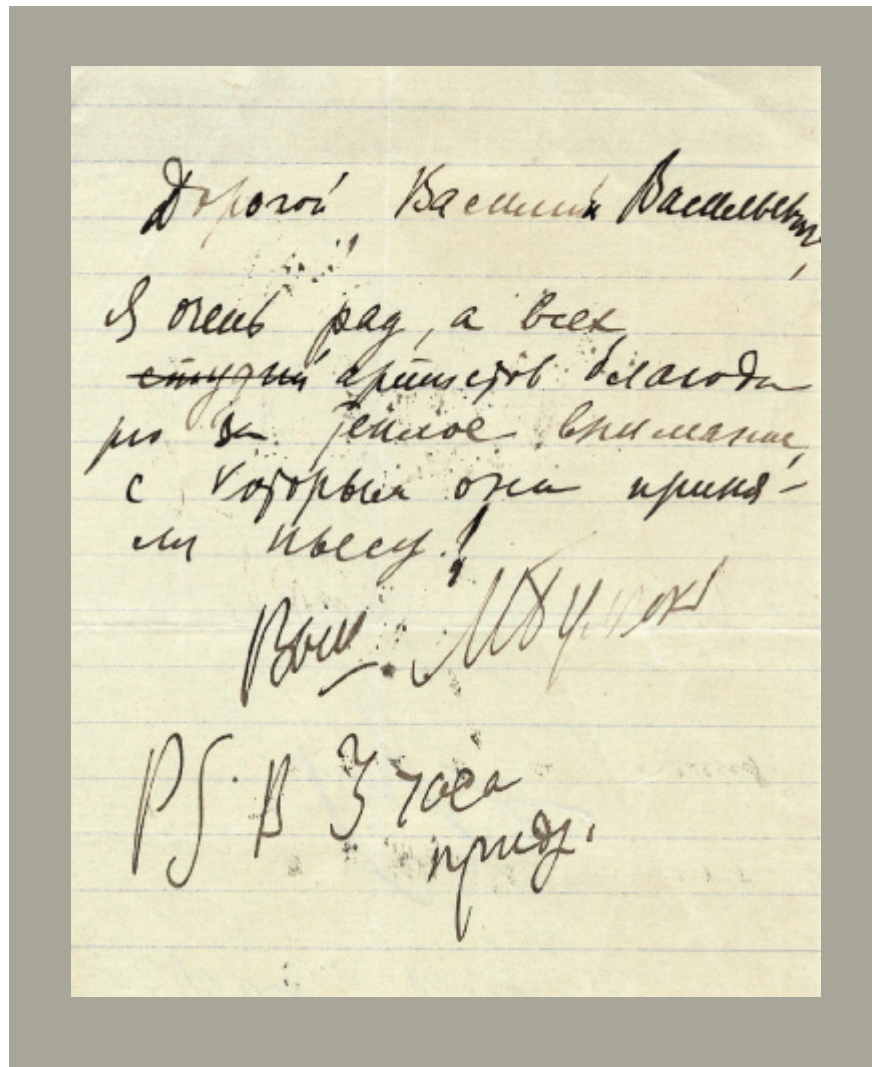 Дорогой Василий Васильевич,
Я очень рад, а всех
студий артистов благода
рю за теплое внимание,
с которым они приня-
ли пьесу!
Ваш МБулгаков
PS. В 3 часа
приду.